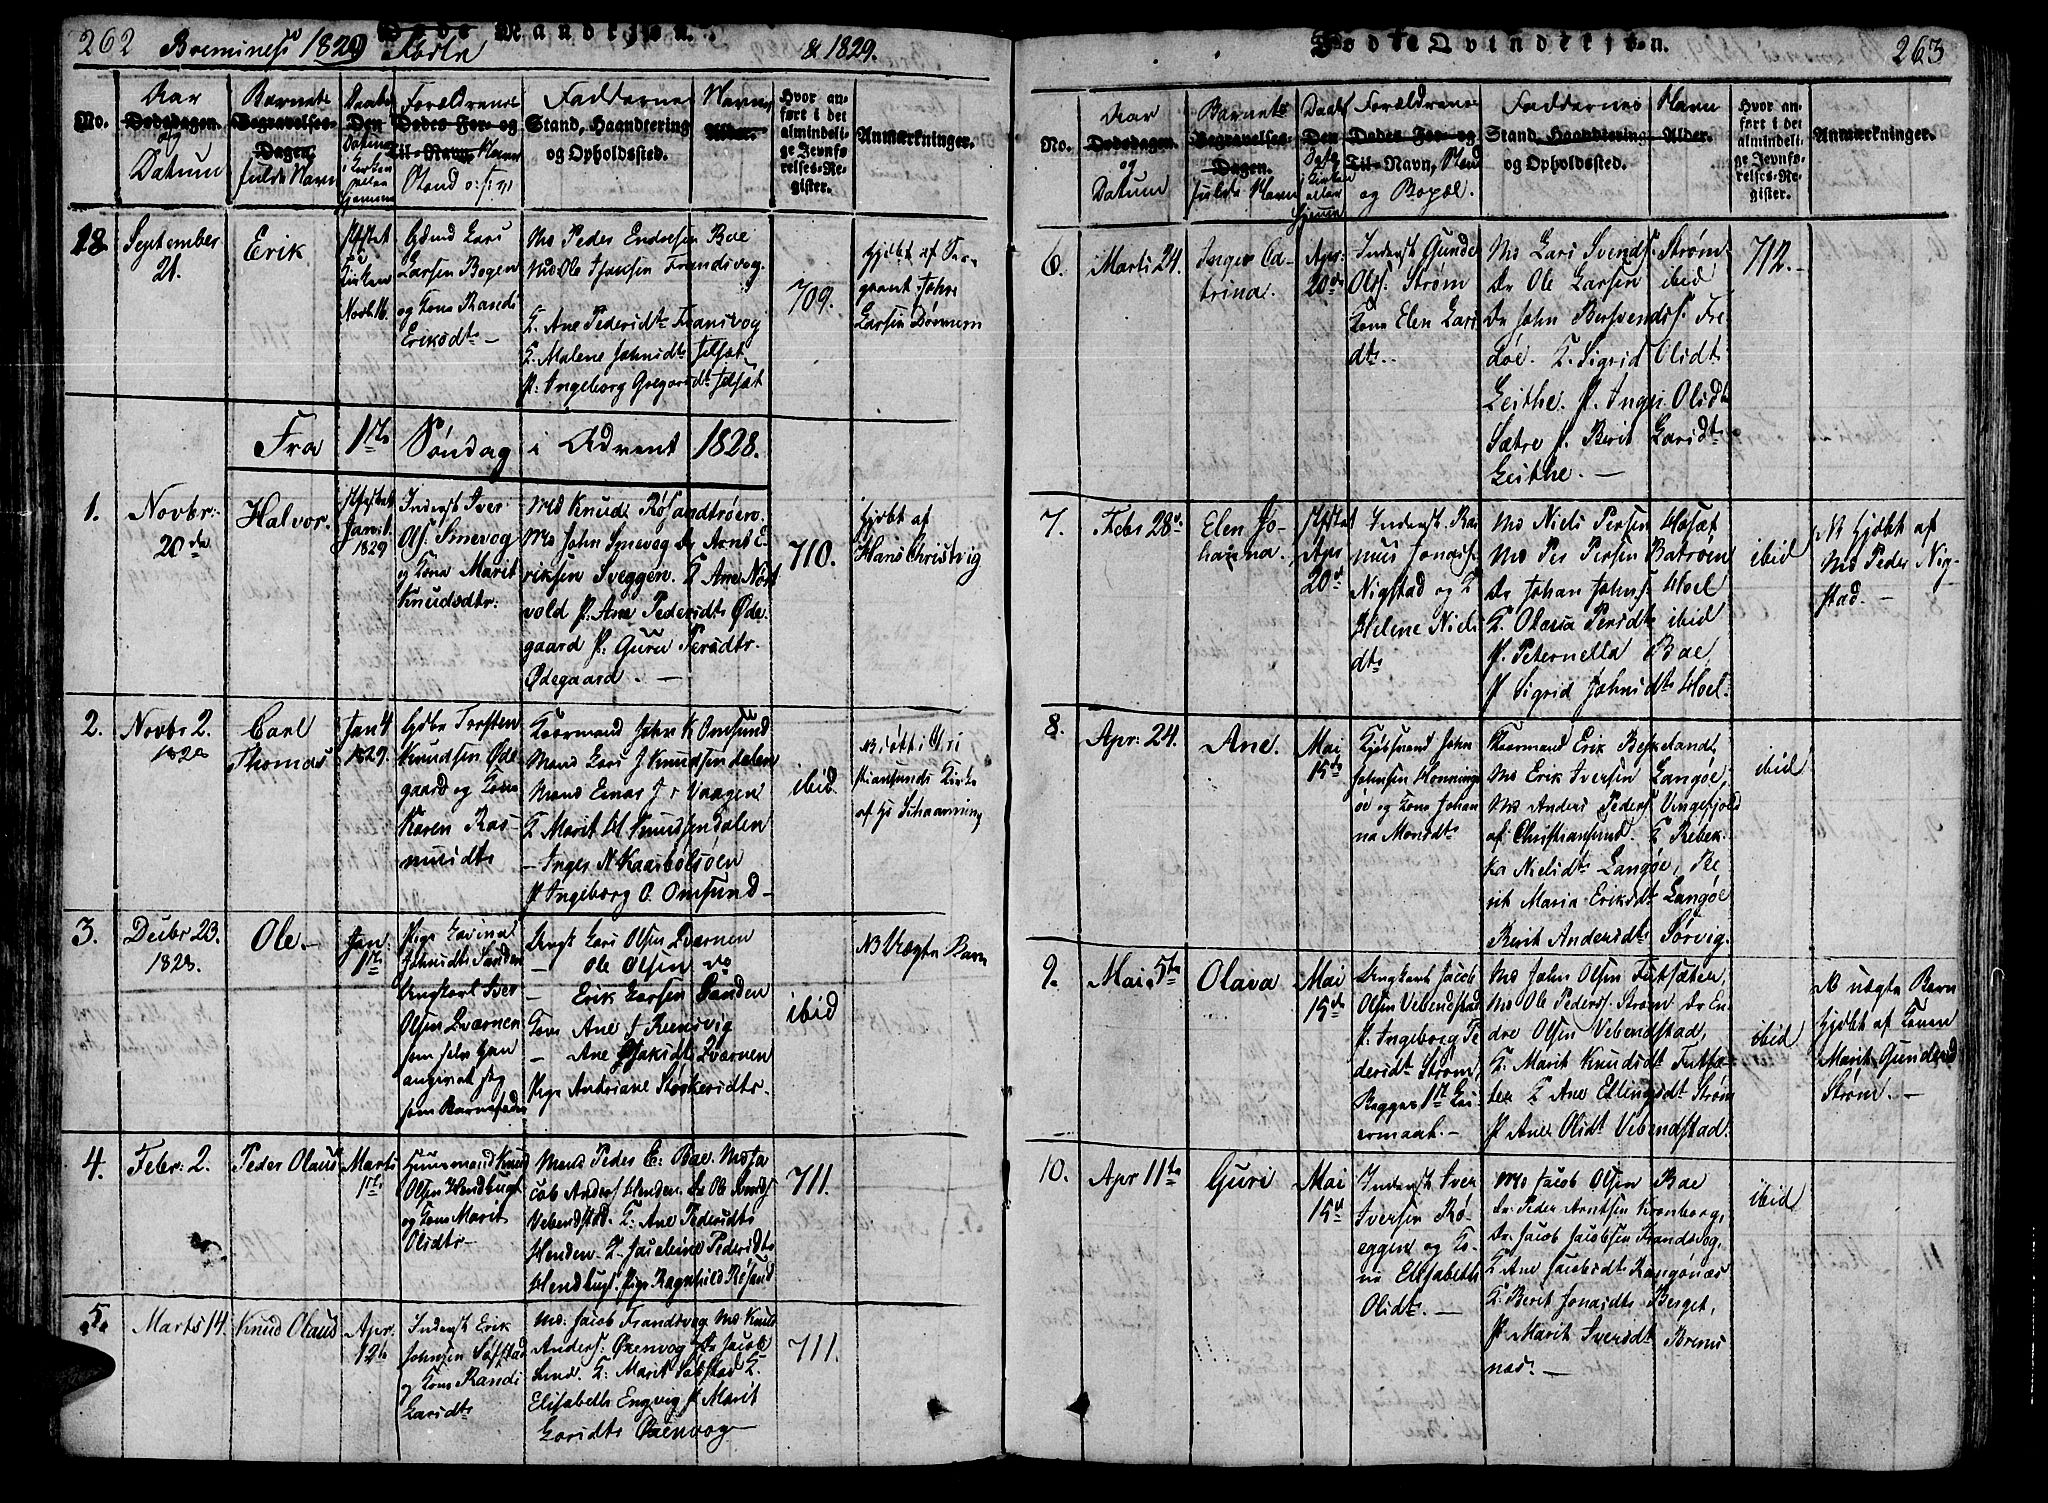 262 Bremnes 1829 Fødte & 1829.
Døde Mandkjøn.
No.
Aar
Dødsdagen.
og
Datum
Barnets
Begravelses-
Dagen
fulde Navn
Daabs
Den
Datum
i Kirken
eller
hjemme
Forældrenes
Dødes For- og
Til-Navn, Navn
Stand o: s: v:
Faddernes
Stand, Haandtering
og Opholdssted.
Navn
Alder.
Hvor an-
ført i det
almindeli-
ge Jevnfø-
relses-Re-
gister.
Anmærkninger.
18
September
21.
Erik
Kirken
Novb: 16.
Lars
Larsen Bogen
og Kone Randi
Eriksdt. —
Md Peder Endersen Bae
Ole Jensen Frandsvog.
K. Ane Pedersdt. Fransvog
K. Malene Johnsdt.
P. Ingeborg Gregorsdt.
709.
hjdøbt af Ser-
geant John
Larsen
Fra 1ste Søndag i Advent 1828.
1.
Novbr:
20de
Halvor.
Jan: 1.
1829
Inderst Iver
Ols. Smevog
og Kona Marit
Knudsdtr.
Md Knud Røsandtrøen.
Md John Smevog Dr Arnt E-
riksen Sveggen. K Ane Nort
vold P. Ane Pedersdt. Øde-
gaard P. Guru Persdtr.
Ødegaard. —
710.
hjdøbt af
Hans Christvig
2.
Novbr 2.
1828
Carl
Thomas
Jan 4
1829.
Gdbr Torsten
Knudsen Øde
gaard og Kone
Karen Ras-
musdt.
Koormand John K Omsund
Mand Lars J. Knudsen dalen
Mand Einar J. Vaagen
K Marit H Knudsen dalen
— Inger N Kaarbølsøen
P. Ingeborg O. Omsund —
ibid
NB døbt i Chri
stiansunds Kirke
af Hr Schaanning
3.
Decbr 23.
1828.
Ole. —
Jan:
1ste
Pige Lovina
Johnsdt. Sanden
Ungkarl Iver
Olsen Qværnen
som selv han
angivet sig
som Barnefader
Ungk Lars Olsen Qværnen
— Ole Olsen do
— Erik Larsen Sanden
Kone Ane J Reensvig
— Ane Isaksdt. Qværnen
Pige Antriane
ibid
NB Uægte Barn
4.
Febr: 2.
Peder Olaus
Marts
1ste
Huusmand Knud
Olsen Hendbugt
og Kone Marit
Olidtr —
Mand Peder E: Bae. Md Ja
cob Anders: Henden. Dr Ole
Vebenstad. K: Ane Pedersdt.
Henden. K. Jacobine Pedersdt.
Hendbugt. Pige Ragnhild Røsand
711.
5.
Marts 14
Knud Olaus
Apr.
12te
Inderst Erik
Johnsen Søfstad
og Kone Randi
Larsdt.
Md. Jacob Frandsvog Md Knud
Anders: Øxenvog Dr Jacob
Lind. K: Marit Søbstad K.
Elisabeth Engvig P Marit
Larsdt. Øxenvog —
711.
Fødte Qvindekjøn. 263
No.
Aar
Dødsdagen.
og
Datum
Barnets
Begravelses-
Dagen.
fulde Navn
Daab
Den
Dato
i Kirken
eller
hjemme
Forældrenes
Dødes For- og
Til-Navn, Stand
og Bopæl.
Faddernes
Stand, Haandtering
og Opholdssted.
Navn
Alder.
Hvor an-
ført i det
almindeli-
ge Jevnfø-
relses-Re-
gister.
Anmærkninger.
6.
Marts 24.
Inger Ca-
trina.
Apr.
20de
Inderst Gunder
Ols: Strøm
Kone Elen Lars
dt. —
Md Lars Svends: Strøm
Dr Ole Larsen ibid
Dr John Bersvends: Fre-
døe. K. Sigrid Olidt.
Leithe. P. Inger Olidt.
Sætre P. Berit Larsdt.
Leithe. —
712. —
7.
Febr 28de
Elen Jo-
hanna.
Apr
20de
Inderst Ras
mus Jonas:
Nigstad og K
Helene Niels
dt.
Md Niels Persen Hosæt
Md Per Persen Bætrøen
Dr Johan Johns: Hoel
K. Olava Persdt. ibid
P. Peternella Bae
P Sigrid Johnsdt. Hoel.
ibid
N hjdøbt af
Md Peder Nig-
stad. —
8.
Apr: 24.
Ane.
Mai
15de
Kjøbmand John
Johnsen Honnings
øe og Kone Johan
na Monsdt.
Koormand Erik Beskeland,
Md Erik Iversen Langøe,
Md Anders Peders: Vingefjold
af Christiansund. K Rebek
ka Nielsdt. Langøe, Be
rit Maria Eriksdt. Langøe
Berit Andersdt. Sørvig.
ibid
9.
Mai 5te
Olava
Mai
15de
Ungkarl Jacob
Olsen Vebenstad
P. Ingeborg Pe
dersdt. Strøm,
Begges 1st Lei
ermaal. —
Md John Olsen Futsæter,
Md Ole Peders: Strøm Dr En
dre Olsen Vebenstad,
K. Marit Knudsdt. Futsæ-
ter K Ane Ellingsdt. Strøm
P Ane Olidt. Vebenstad.
ibid
N uægte Barn
hjdøbt af Konen
Marit Gundersd
Strøm. —
10.
Apr 11te
Guri
Mai
15de
Inderst Iver
Iversen Rø-
eggen og Ko-
ne Elisabeth
Olidt. —
Md Jacob Olsen Bae
Dr. Peder Arntsen Kronborg,
Dr. Jacob Jacobsen Frandsvog,
K Ane Jacobsdt. Rangønæs
K. Berit Jonasdt. Berget,
P. Marit Iversdt. Brems
næs. —
ibid